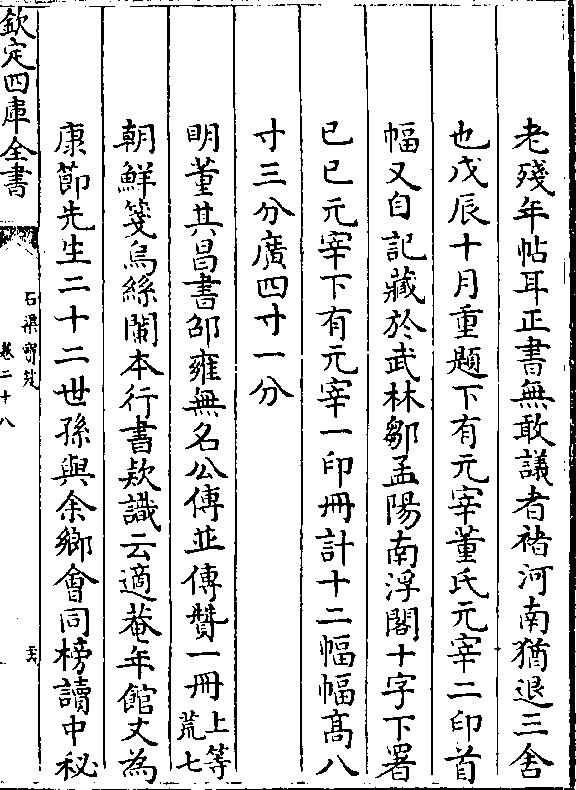 老殘年帖耳正書無敢議者褚河南猶退三舍
也戊辰十月重題下有元宰董氏元宰二印首
幅又自記藏於武林鄒孟陽南浮閣十字下署
已巳元宰下有元宰一印冊計十二幅幅高八
寸三分廣四寸一分
明董其昌書邵雍無名公傳並傳贊一冊上等荒七
朝鮮箋烏絲闌本行書欵識云適菴年館丈為
康節先生二十二世孫與余鄉會同榜讀中秘
欽定四庫全書
石渠寶笈
卷二十八